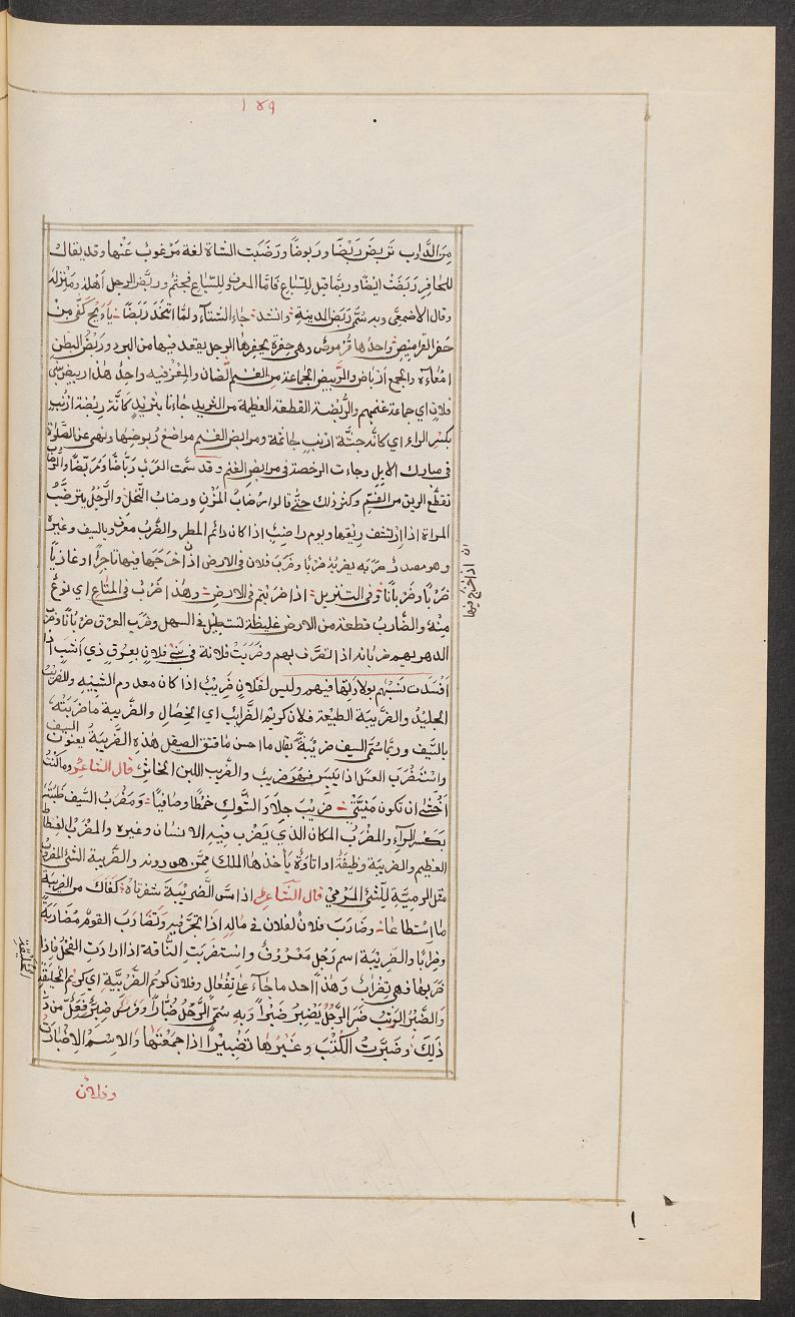 ١٨٩
من الدواب تربض ربضا وربوضا ورضبت الشاة لغة مرغوب عنها وقد يقال
للحافر ربضت ايضا وربما قيل للسباع فاما المعروف للسباع فجثم وربض الرجل اهله ومنزله
وقال الأصمعي وبه سمّي ربض المدينة وانشد جاء الشتاء ولمّا اتخذ ربضا يا ويح كفّي من
حفر القراميص واحدها قرموص وهي حفرة يحفرها الرجل يقعد فيها من البرد وربض البطن
امعاءه والجمع ارباض والربيض الجماعة من الغنم الضان والمعز فيه واحد هذا ربيض بني
فلان اي جماعة غنمهم والربضة القطعة العظيمة من الثريد جاءنا بثريد كانّه ربضة ارنب
بكسر الراء اي كانه جثّة ارنب جاثمة ومرابض الغنم مواضع ربوضها ونهي عن الصلوة
في مبارك الابل وجاءت الرخصة في مرابض الغنم وقد سمّت العرب ربّاضا ومربّضا والرضاب
تقطّع الريق من الفم وكثر ذلك حتّى قالوا رضاب المزن ورضاب النحل والرجل يترضّب
المراة اذا ارتشف ريقها ويوم راضب اذا كان دائم المطر والضرب معروف بالسيف وغيره
وهو مصدر ضربه يضربه ضربا وضرب فلان في الارض اذا خرج فيها تاجرا او غازيا
ان اذا خرج فيها
ضربا وضربانا وفي التنزيل اذا ضربتم في الارض وهذا ضرب في المتاع اي نوع
منه والضارب قطعة من الارض غليظة تستطيل في السهل وضرب العرق ضربانا وضرب
الدهر بهم ضربانه اذا تصرّف بهم وضربت فلانة في بني فلان بعرق ذي اشب اذا
افسدت نسبهم بولادتها فيهم وليس لفلان ضريب اذا كان معدوم الشبيه والضريب
الجليد والضريبة الطبيعة فلان كريم الضرائب اي الخصال والضريبة ما ضربته
بالسيف وربما سمّي السيف ضريبة يقال ما احسن ما فتق الصيقل هذه الضريبة يعنون السيف
واستضرب العسل اذا يبس فهو ضريب والضريب اللبن الخاثر قال الشاعر وما كنت
اخشى ان تكون منيّتي ضريب جلاد الشول خمطا وصافيا ومضرب السيف ظبته
بكسر الراء والمضرب المكان الذي يضرب فيه الانسان وغيره والمضرب الفسطاط
العظيم والضريبة وظيفة او اتاوة يأخذها الملك ممّن هو دونه والضريبة الشئ المضروب
مثل الرميّة للشئ المرمي قال الشاعر اذا مسّ الضريبة شفرتاه كفاك من الضريبة
ما استطاعا وضارب فلان لفلان في ماله اذا تجر فيه وتضارب القوم مضاربة
وضرابا والضريبة اسم رجل معروف واستضربت الناقة اذا ارادت الفحل فاذا
ضربها فهي تضراب وهذا احد ما جاء على تفعال وفلان كريم الضريبة اي كريم الخليقة
الخليقة
والضبر الوثب ضبر الرجل يضبر ضبرا وبه سمّي الرجل ضبّارا وفرس ضبر فعلّ من
ذلك وضبّرت الكتب وغيرها تضبيرا اذا جمعتها والاسم الاضبارة
وفلان